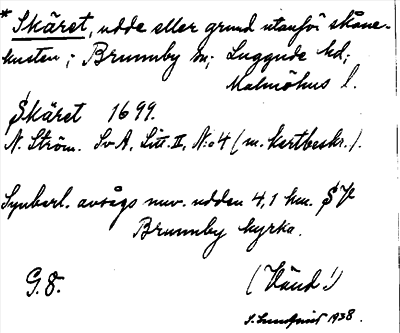 * Skäret, udde eller grund utanför skåne-
kusten; Brunnby sn; Luggude hd;
Malmöhus l.
Skäret 1699.
N. Ström. Sv A, Litt. II, N:o 4 (m. kartbeskr.).
Synbarl. avsågs nuv. udden 4,1 km. SV
Brunnby kyrka.
G. 8. (Vänd!)
S. Lundquist 1938.